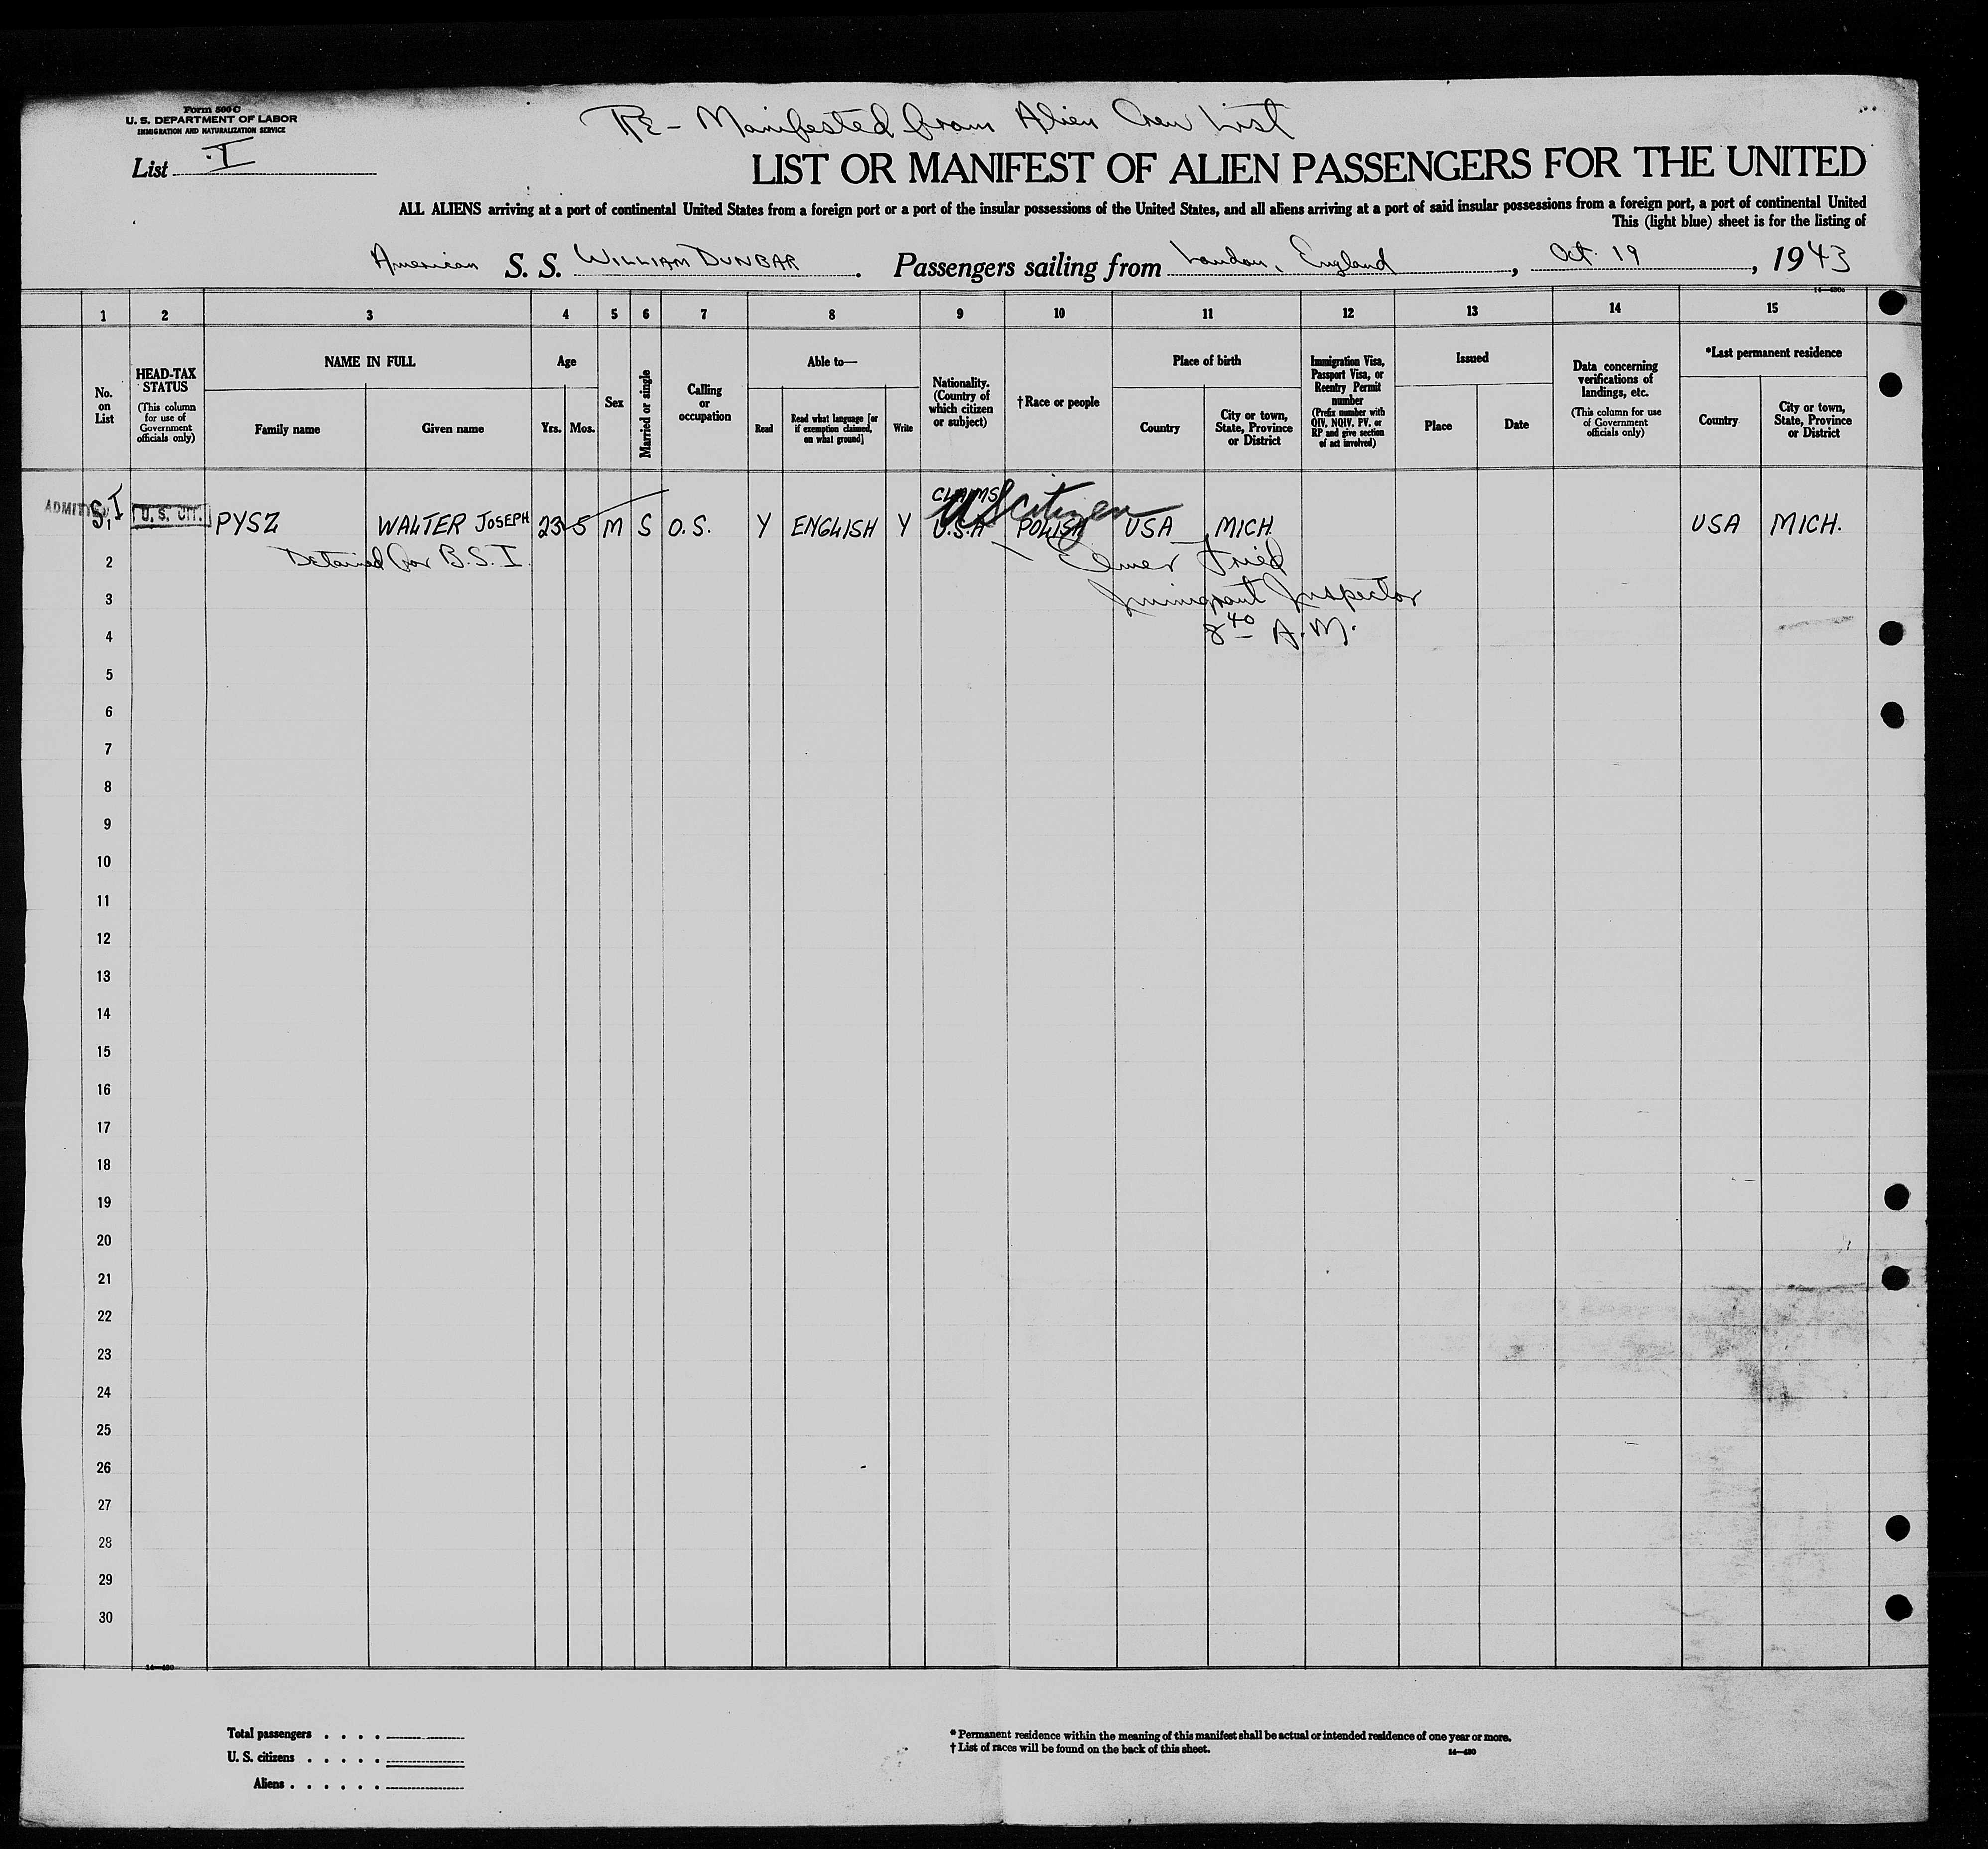 Form 500 C
U. S. DEPARTMENT OF LABOR
IMMIGRATION AND NATURALIZATION SERVICE
List I
RE - Manifested from Alien Crew List
LIST OR MANIFEST OF ALIEN PASSENGERS FOR THE UNITED
ALL ALIENS arriving at a port of continental United States from a foreign port or a port of the insular possessions of the United States, and all aliens arriving at a port of said insular possessions from a foreign port, a port of continental United
This (light blue) sheet is for the listing of
American S. S. WILLIAM DUNBAR. Passengers sailing from London, England, Oct. 19, 1943
14—430c
1 2 3 4 5 6 7 8 9 10 11 12 13 14 15
No. on List
HEAD-TAX STATUS
(This column for use of Government officials only)
NAME IN FULL
Family name
Given name
Age
Yrs. Mos.
Sex
Married or single
Calling or occupation
Able to—
Read
Read what language [or if exemption claimed, on what ground]
Write
Nationality. (Country of which citizen or subject)
†Race or people
Place of birth
Country
City or town, State, Province or District
Immigration Visa, Passport Visa, or Reentry Permit number
(Prefix number with QIV, NQIV, PV, or RP and give section of act involved)
Issued
Place
Date
Data concerning verifications of landings, etc.
(This column for use of Government officials only)
*Last permanent residence
Country
City or town, State, Province or District
CLAIMS
US citizen
ADMITTED S.I. 1 U. S. CIT. PYSZ WALTER JOSEPH 23 5 M S O.S. Y ENGLISH Y U.S.A POLISH USA MICH. USA MICH.
2 Detained for B.S.I. Elmer Fried
3 Immigrant Inspector
4 8 40 A.M.
5
6
7
8
9
10
11
12
13
14
15
16
17
18
19
20
21
22
23
24
25
26
27
28
29
30
14—430
Total passengers . . . .
U. S. citizens . . . . .
Aliens . . . . . .
* Permanent residence within the meaning of this manifest shall be actual or intended residence of one year or more.
† List of races will be found on the back of this sheet.
14—430